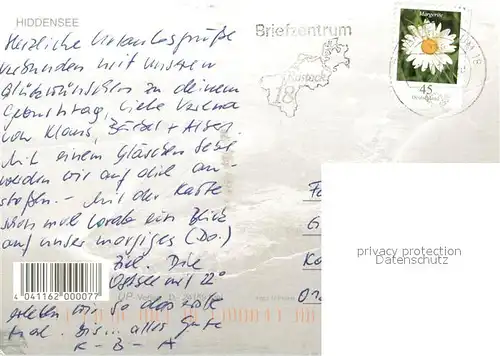 HIDDENSEE
Herzliche Urlaubsgrüße
verbunden mit unseren
Glückwünschen zu deinem
Geburtstag, liebe Verena
von Klaus, Bärbel +
Mit einem Gläschen Sekt
werden wir auf dich an-
stoßen. – Mit der Karte
schon mal vorab ein Blick
auf unser morgiges (Do.)
Ziel. Die
Ostsee mit 22°
erleben wir so das erste
Mal. Bis... alles Gute
K - B - A
4 041162 000077
Briefzentrum
18
Margerite
45
Deutschland
privacy protection
Datenschutz